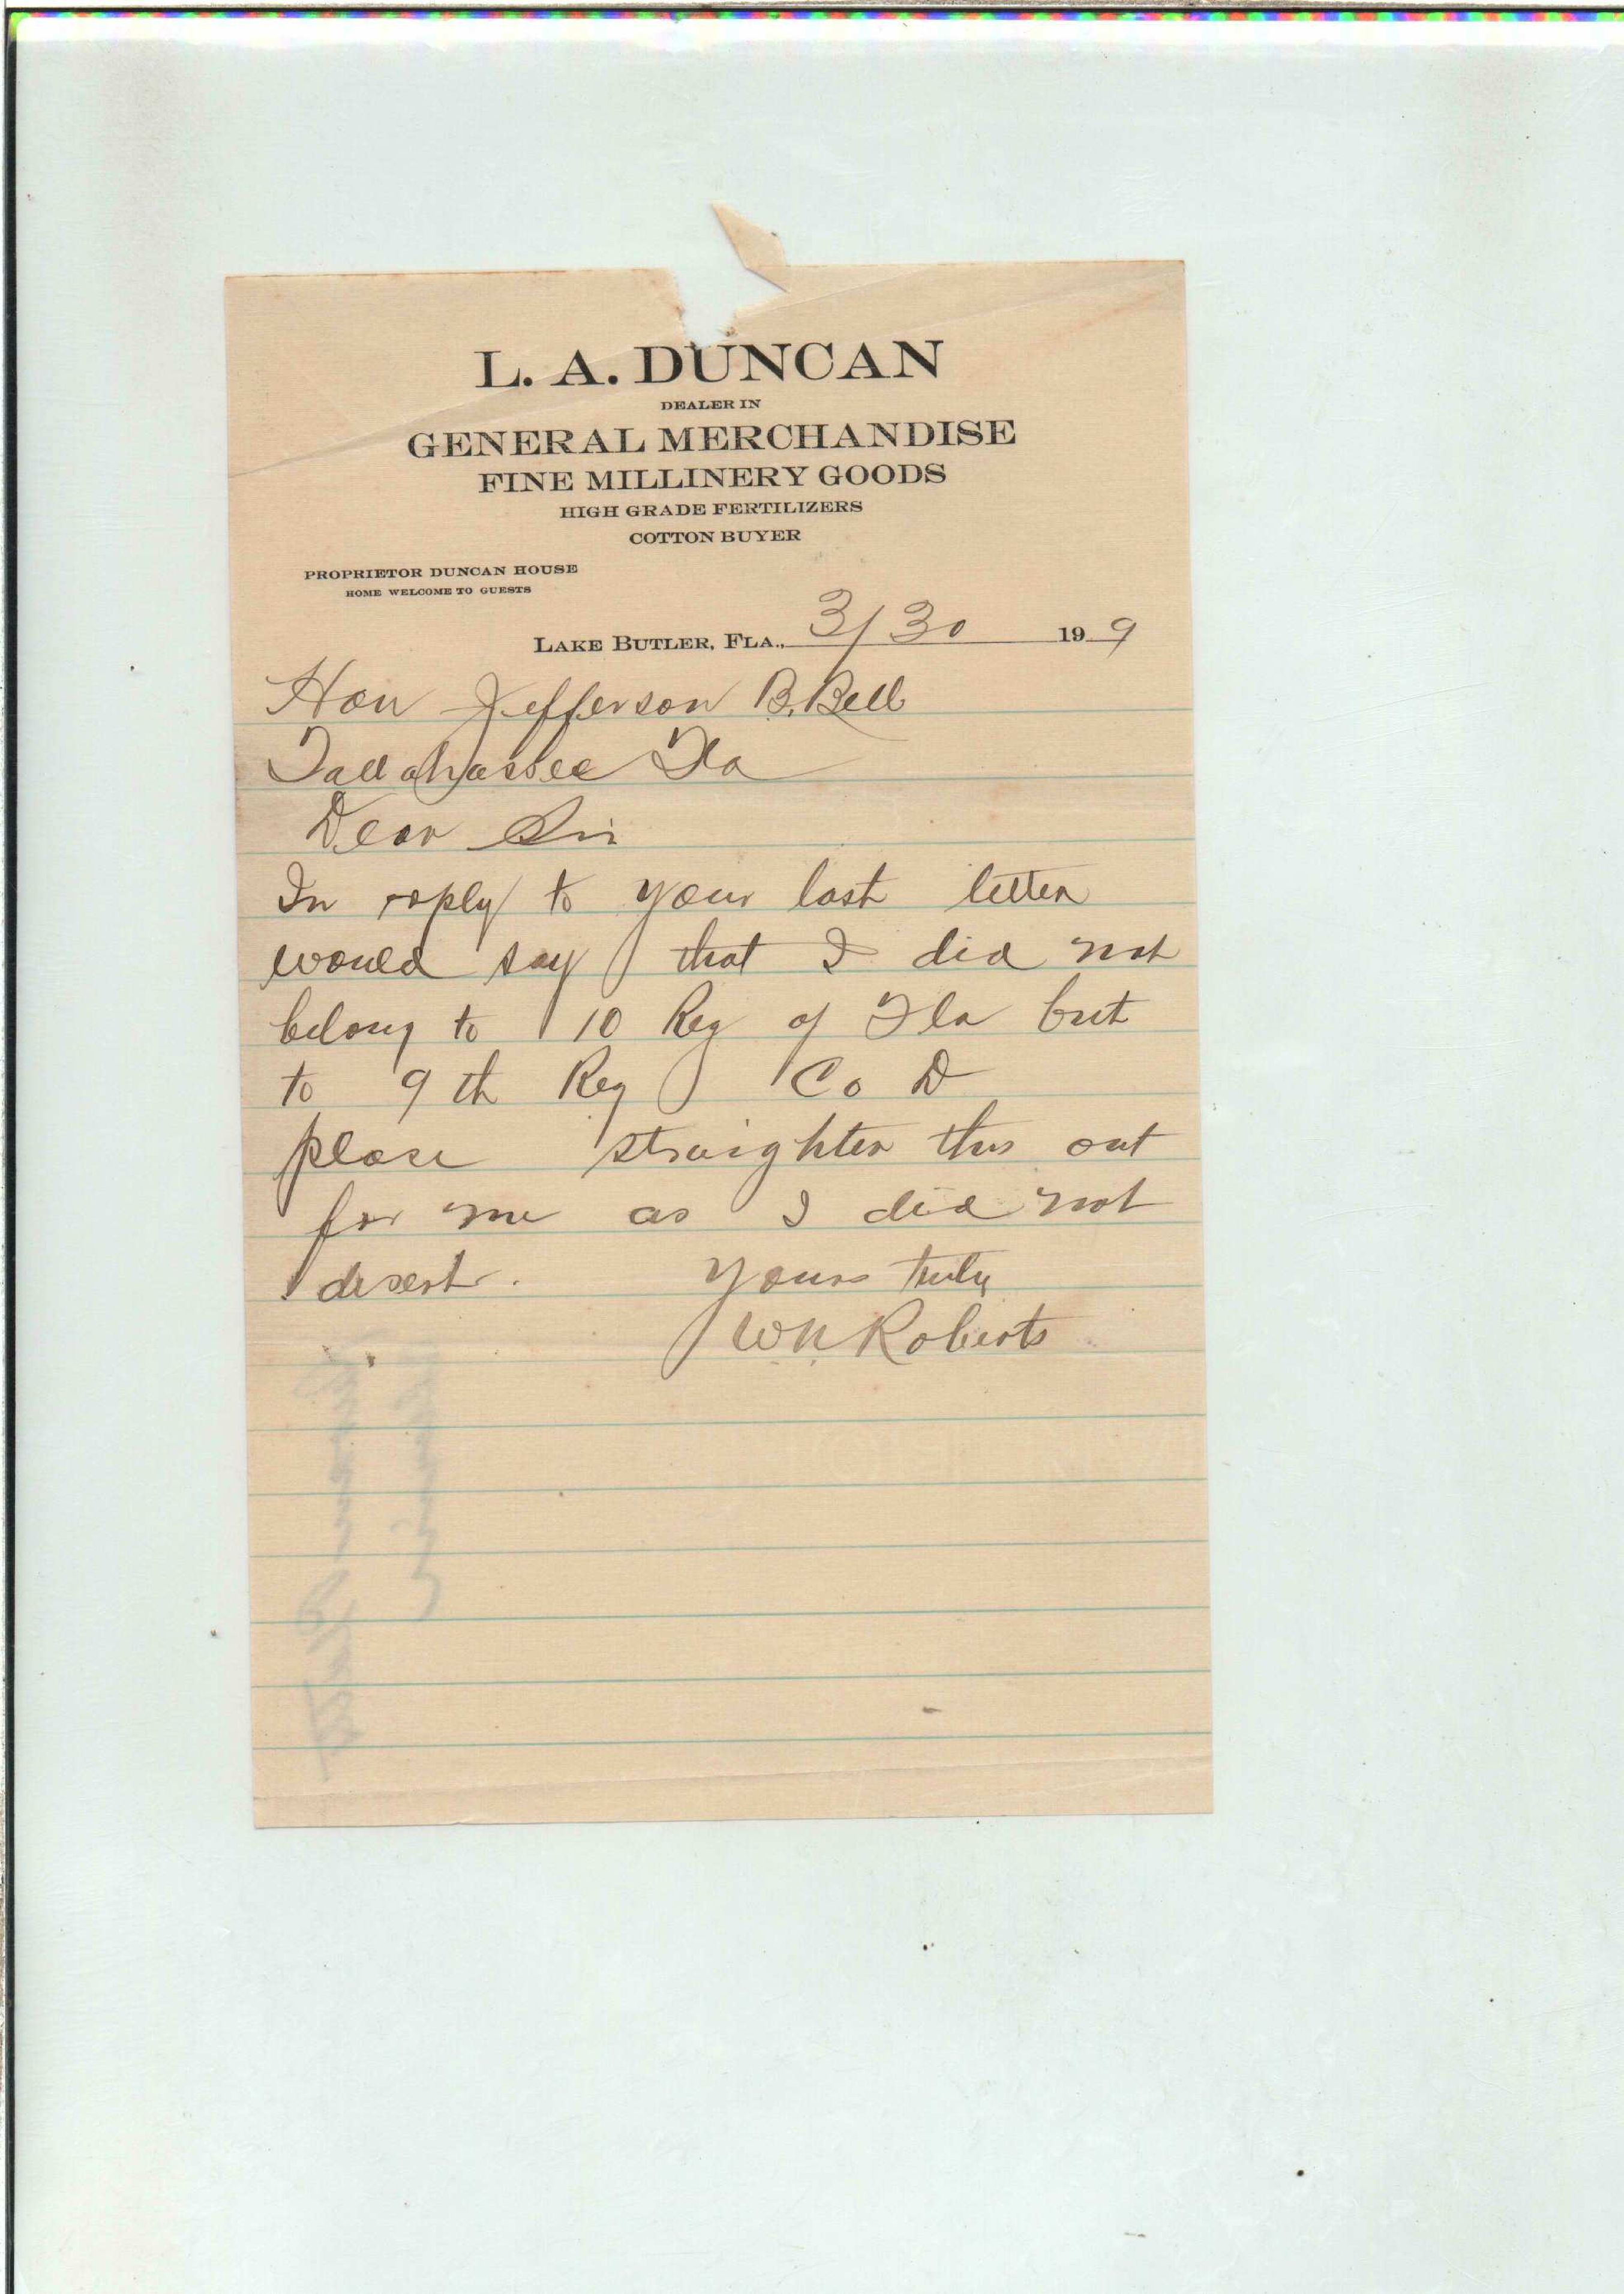 L. A. DUNCAN
DEALER IN
GENERAL MERCHANDISE
FINE MILLINERY GOODS
HIGH GRADE FERTILIZERS
COTTON BUYER
PROPRIETOR DUNCAN HOUSE
HOME WELCOME TO GUESTS
LAKE BUTLER, FLA., 3/30 19 9
Hon Jefferson B. Bell
Tallahassee Fla
Dear Sir
In reply to your last letter
would say that I did not
belong to 10 Reg of Fla but
to 9th Reg Co D
please straighten this out
for me as I did not
desert. Yours truly
Roberts